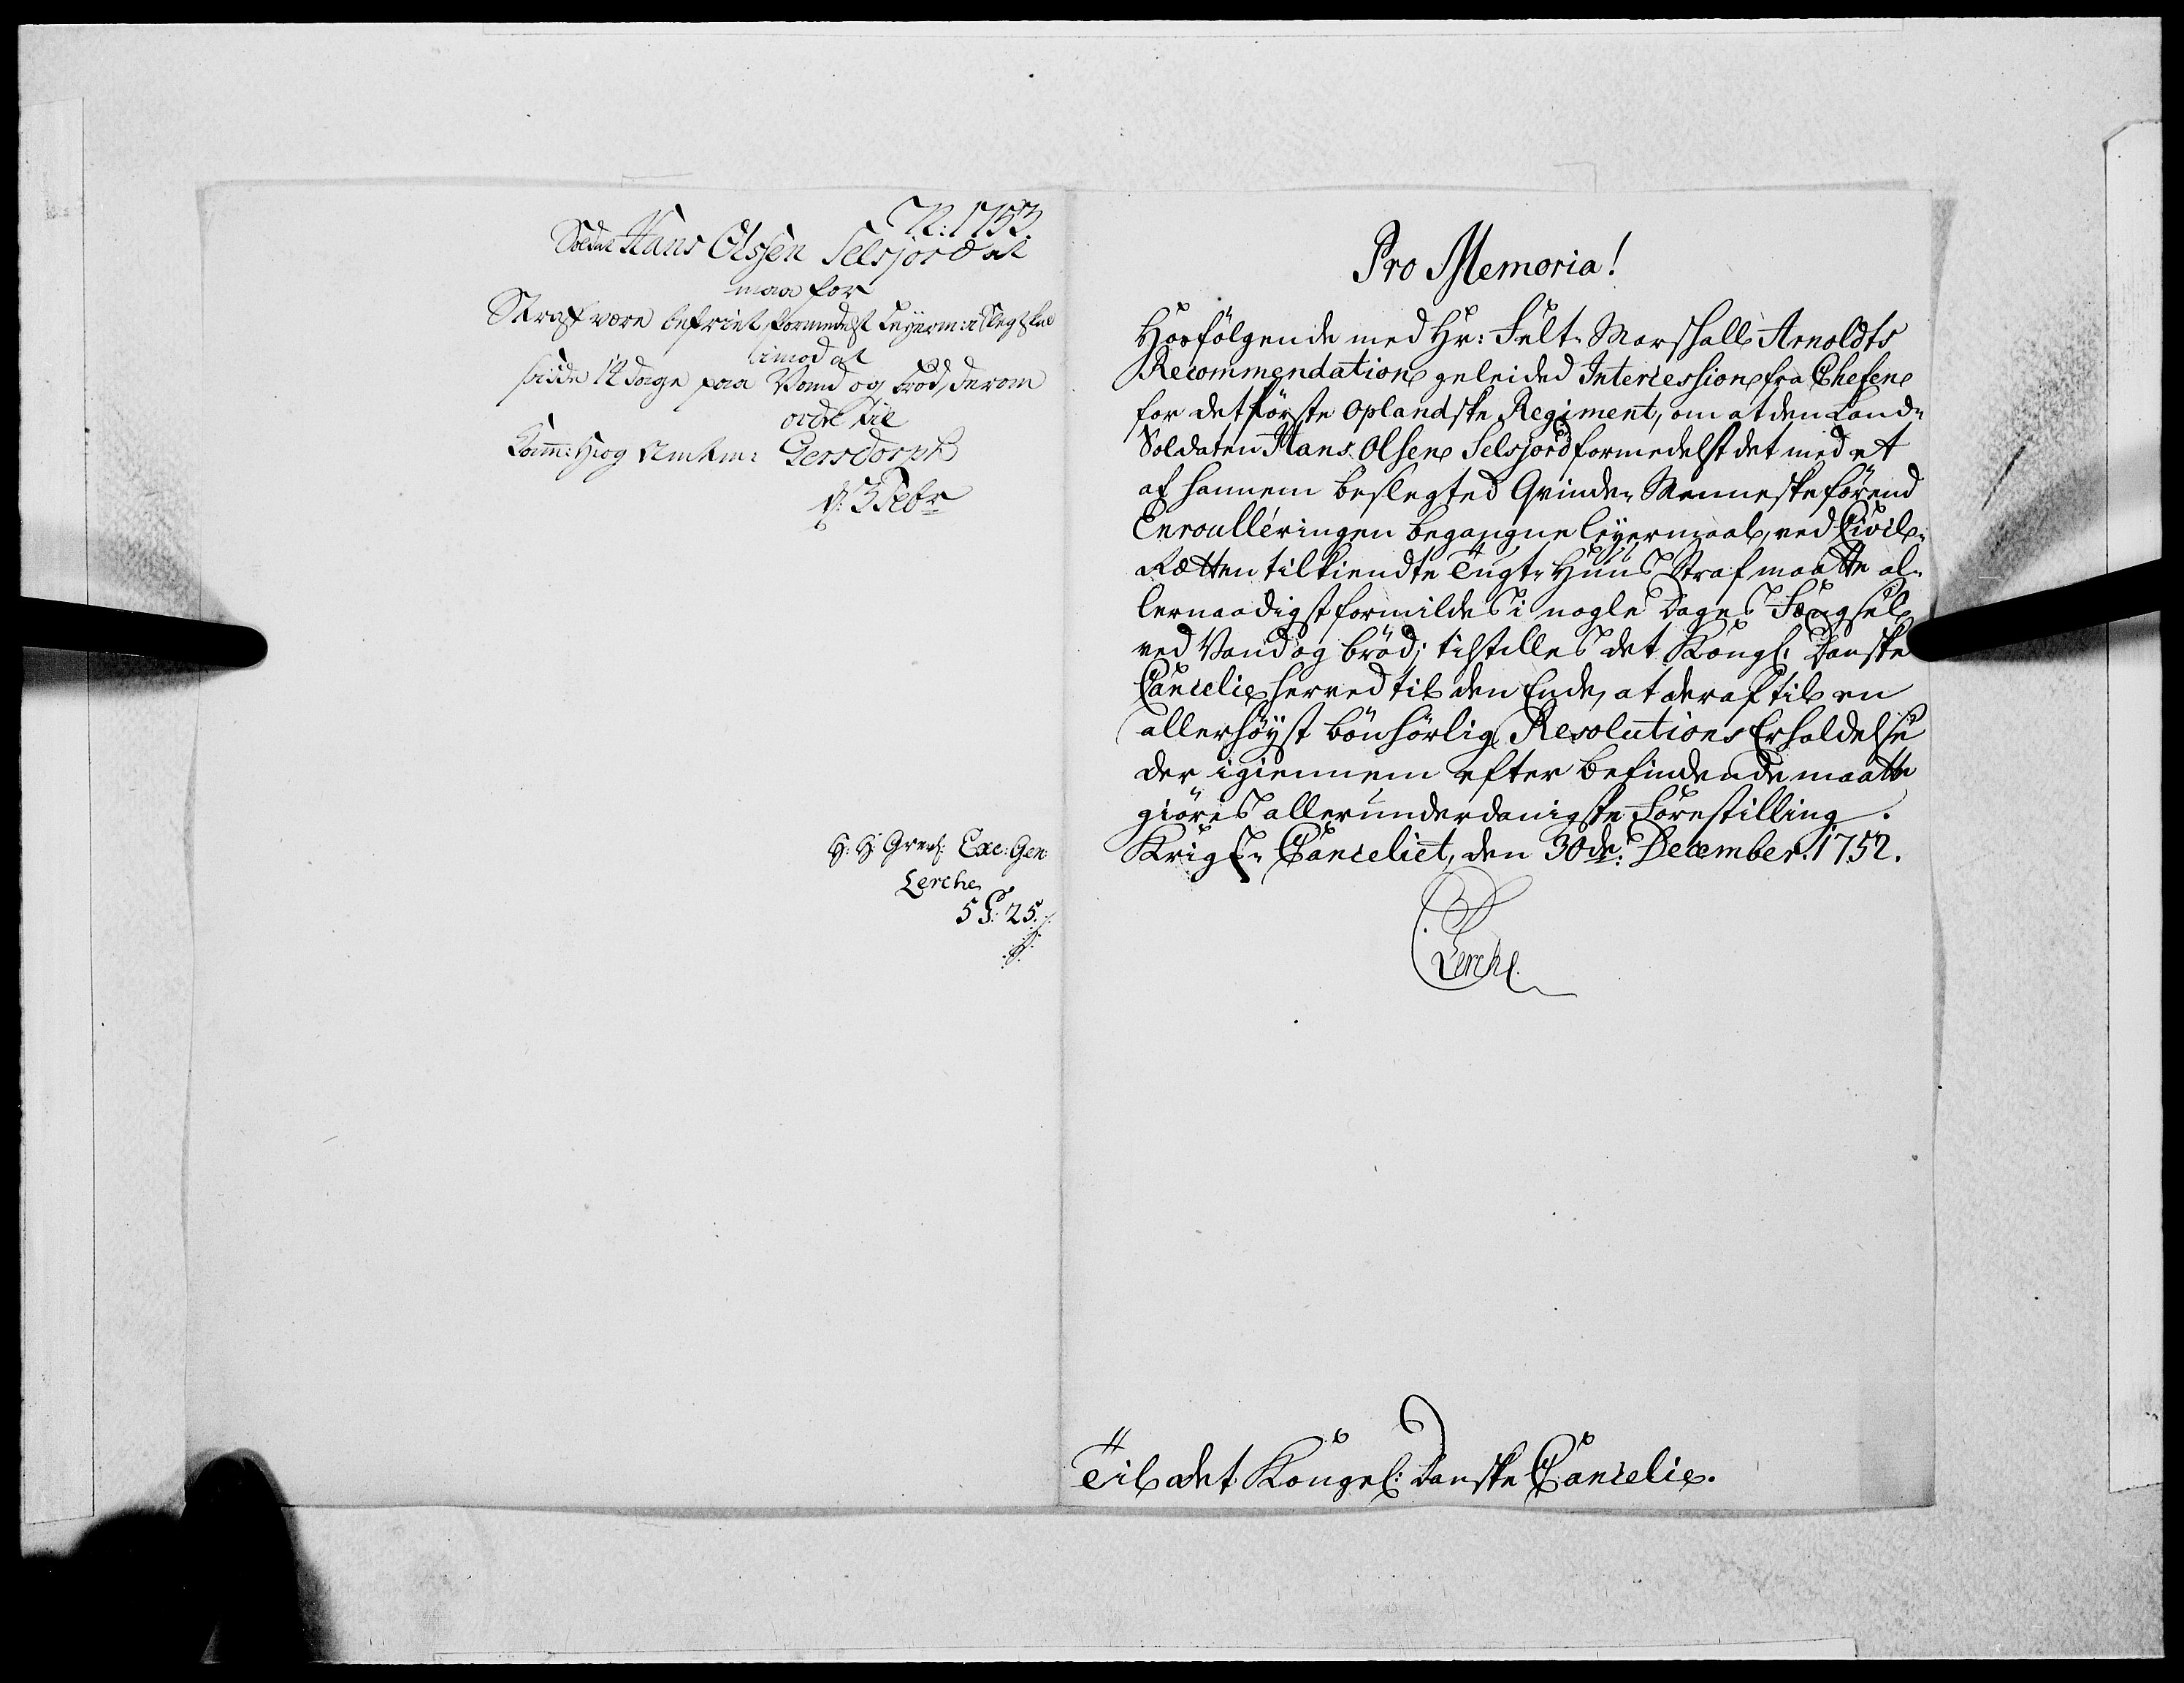 N: 1753.
Soldat Hans Olssen Selsjord at
maa for
Straf være befriet, formedelst Leyerm: i Slegtskab
imod at
sidde 14 dage paa Vand og Brød, derom
ordre til
Camerh: Gersdorph
d: 3 Febr
H: H: Grevel: Exc: Gen:
Lerche
5 S: 25.
Pro Memoria!
Hosfölgende med Hr: Felt-Marshall Arnoldts
Recommendation geleided Intercession fra Chefen
for det förste Oplandske Regiment, om at den Land-
Soldaten Hans Olsen Selsjord formedelst det med et
af hannem beslegted Qvinde-Menneske förend
Enroulléringen begangne Leyermaal, ved Civil-
Rætten tilkiendte Tugt-Huus Straf maatte al-
lernaadigst formildes i nogle Dages Fængsel
ved Vand og bröd; tilstilles det Kongl: Danske
Cancelie herved til den Ende, at deraf til en
allerhöyst bönhörlig Resolutions Erholdelse
der igiennem efter befindende maatte
giöres allerunderdanigste Forestilling.
Krigs-Canceliet, den 30de: December. 1752.
Lerche.
Til det Kongel: Danske Cancelie.